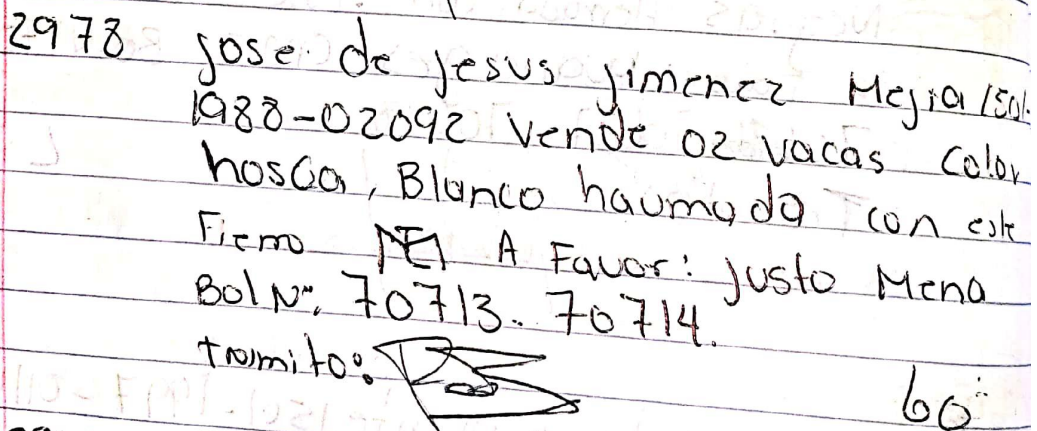 2978 Jose de Jesus Jimenez Mejia 1501-
1988-02092 Vende 02 vacas Color
hosca, Blanco haumado con este
Fierro A Favor: Justo Mena
Bol N°. 70713. 70714.
tramito:
60